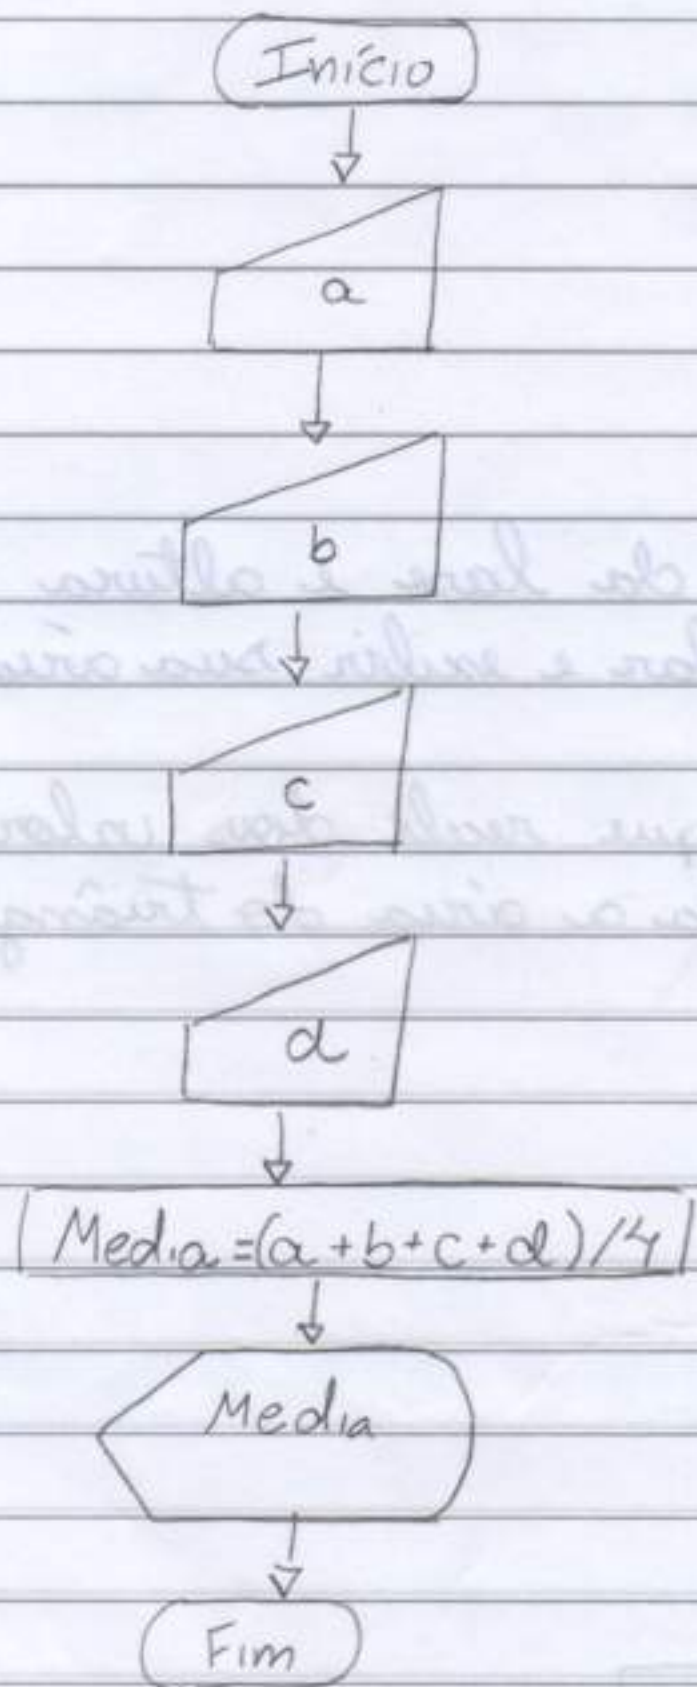 Início
a
b
c
d
Media=(a+b+c+d)/4
Media
Fim